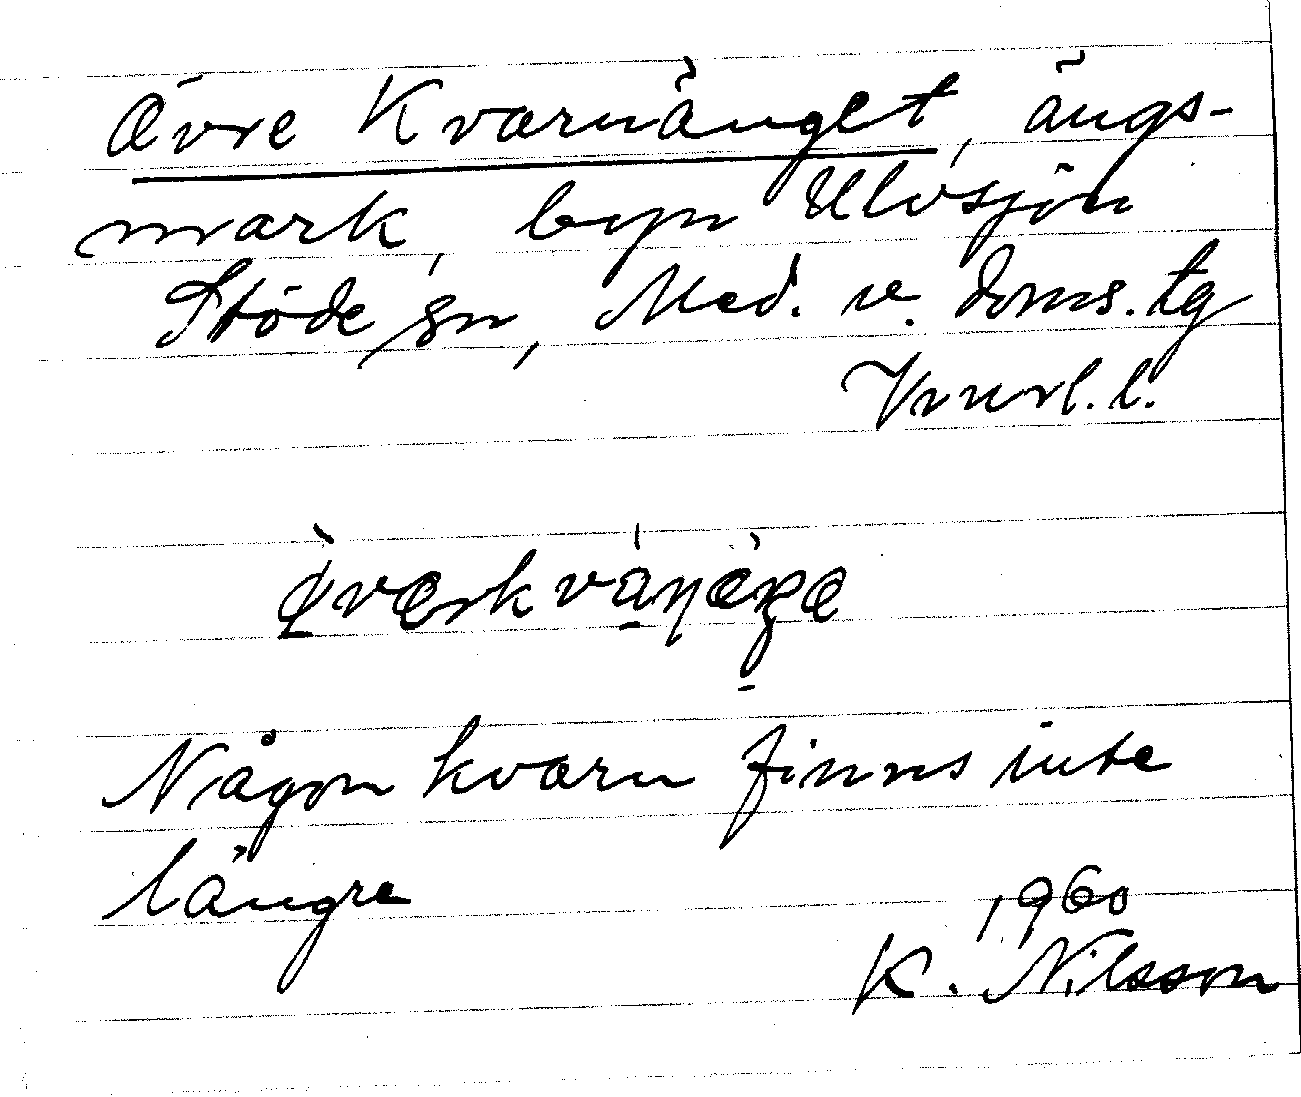 Övre Kvarnänget, ängs-
mark, byn Ulvsjön
Stöde sn, Med. v. doms. tg
Vnrl. l.
Någon kvarn finns inte
längre
1960
K. Nilsson